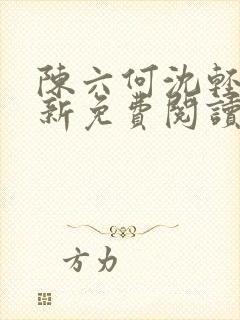 陳六何沈輕
新免費閱讀
方力